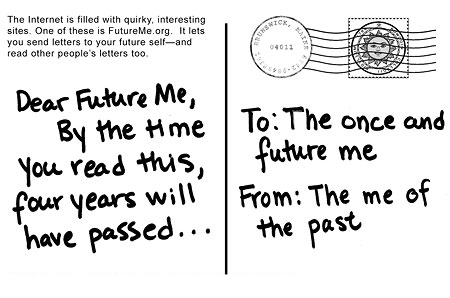 The Internet is filled with quirky, interesting
sites. One of these is FutureMe.org. It lets
you send letters to your future self—and
read other people's letters too.
Dear Future Me,
By the time
you read this,
four years will
have passed...
BRUNSWICK, MAINE
04011
To: The once and
future me
From: The me of
the past